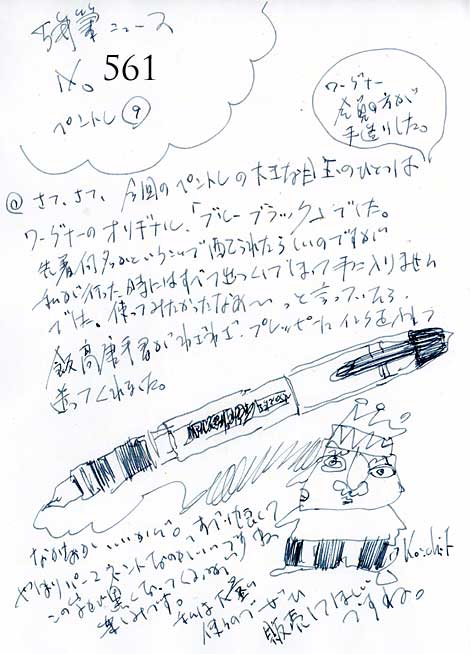 ニュース
No. 561
ペントレ⑨
ワーグナー
会員の方が
手造りしました。
@ さて、さて、今回のペントレの大きな目玉のひとつは
ワーグナーのオリギナル、「ブルーブラック」でした。
先着何名かというシップで配られたらしいのですが
私が行った時にはすべて出つくしてしまって手に入りません
でした。使ってみたかったなぁ〜っと言っていたら、
飯高唐手君がわざわざ、プレッピーにインクを入れて
送ってくれました。
なかなかいいかんじ。
やはりパーマネントなのがいいですね
この字が黒くなってくるのが
楽しみです。私は大量に
使うのでぜひ
販売してほしい
ですね。
Koichi